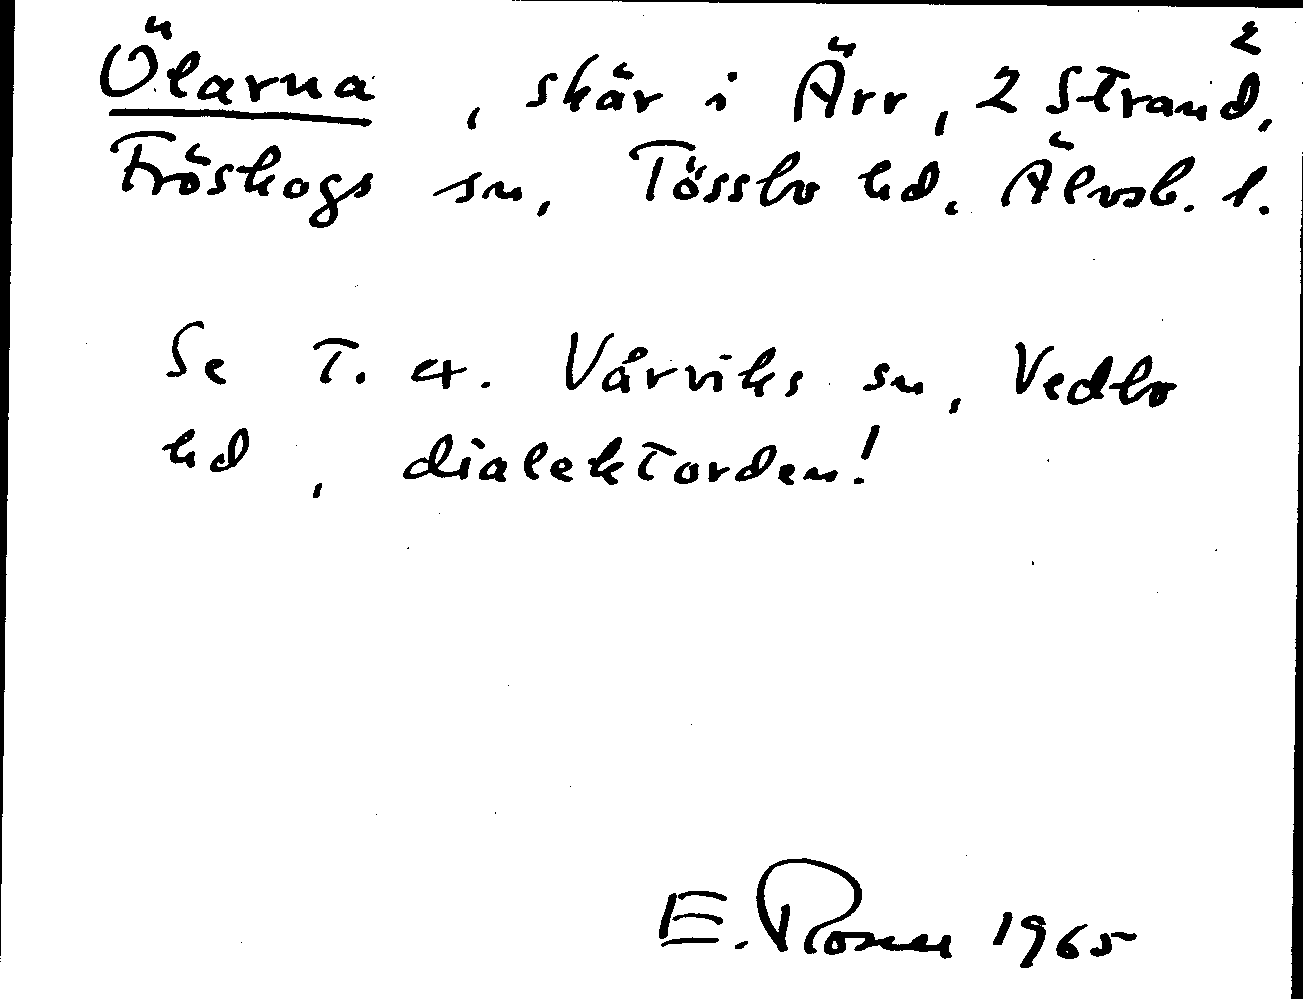 2
Ölarna, skär i Ärr, 2 Strand,
Fröskogs sn, Tössbo hd. Älvsb. l.
Se T. ex. Vårviks sn, Vedbo
hd, dialektorden!
E. Rosen 1965